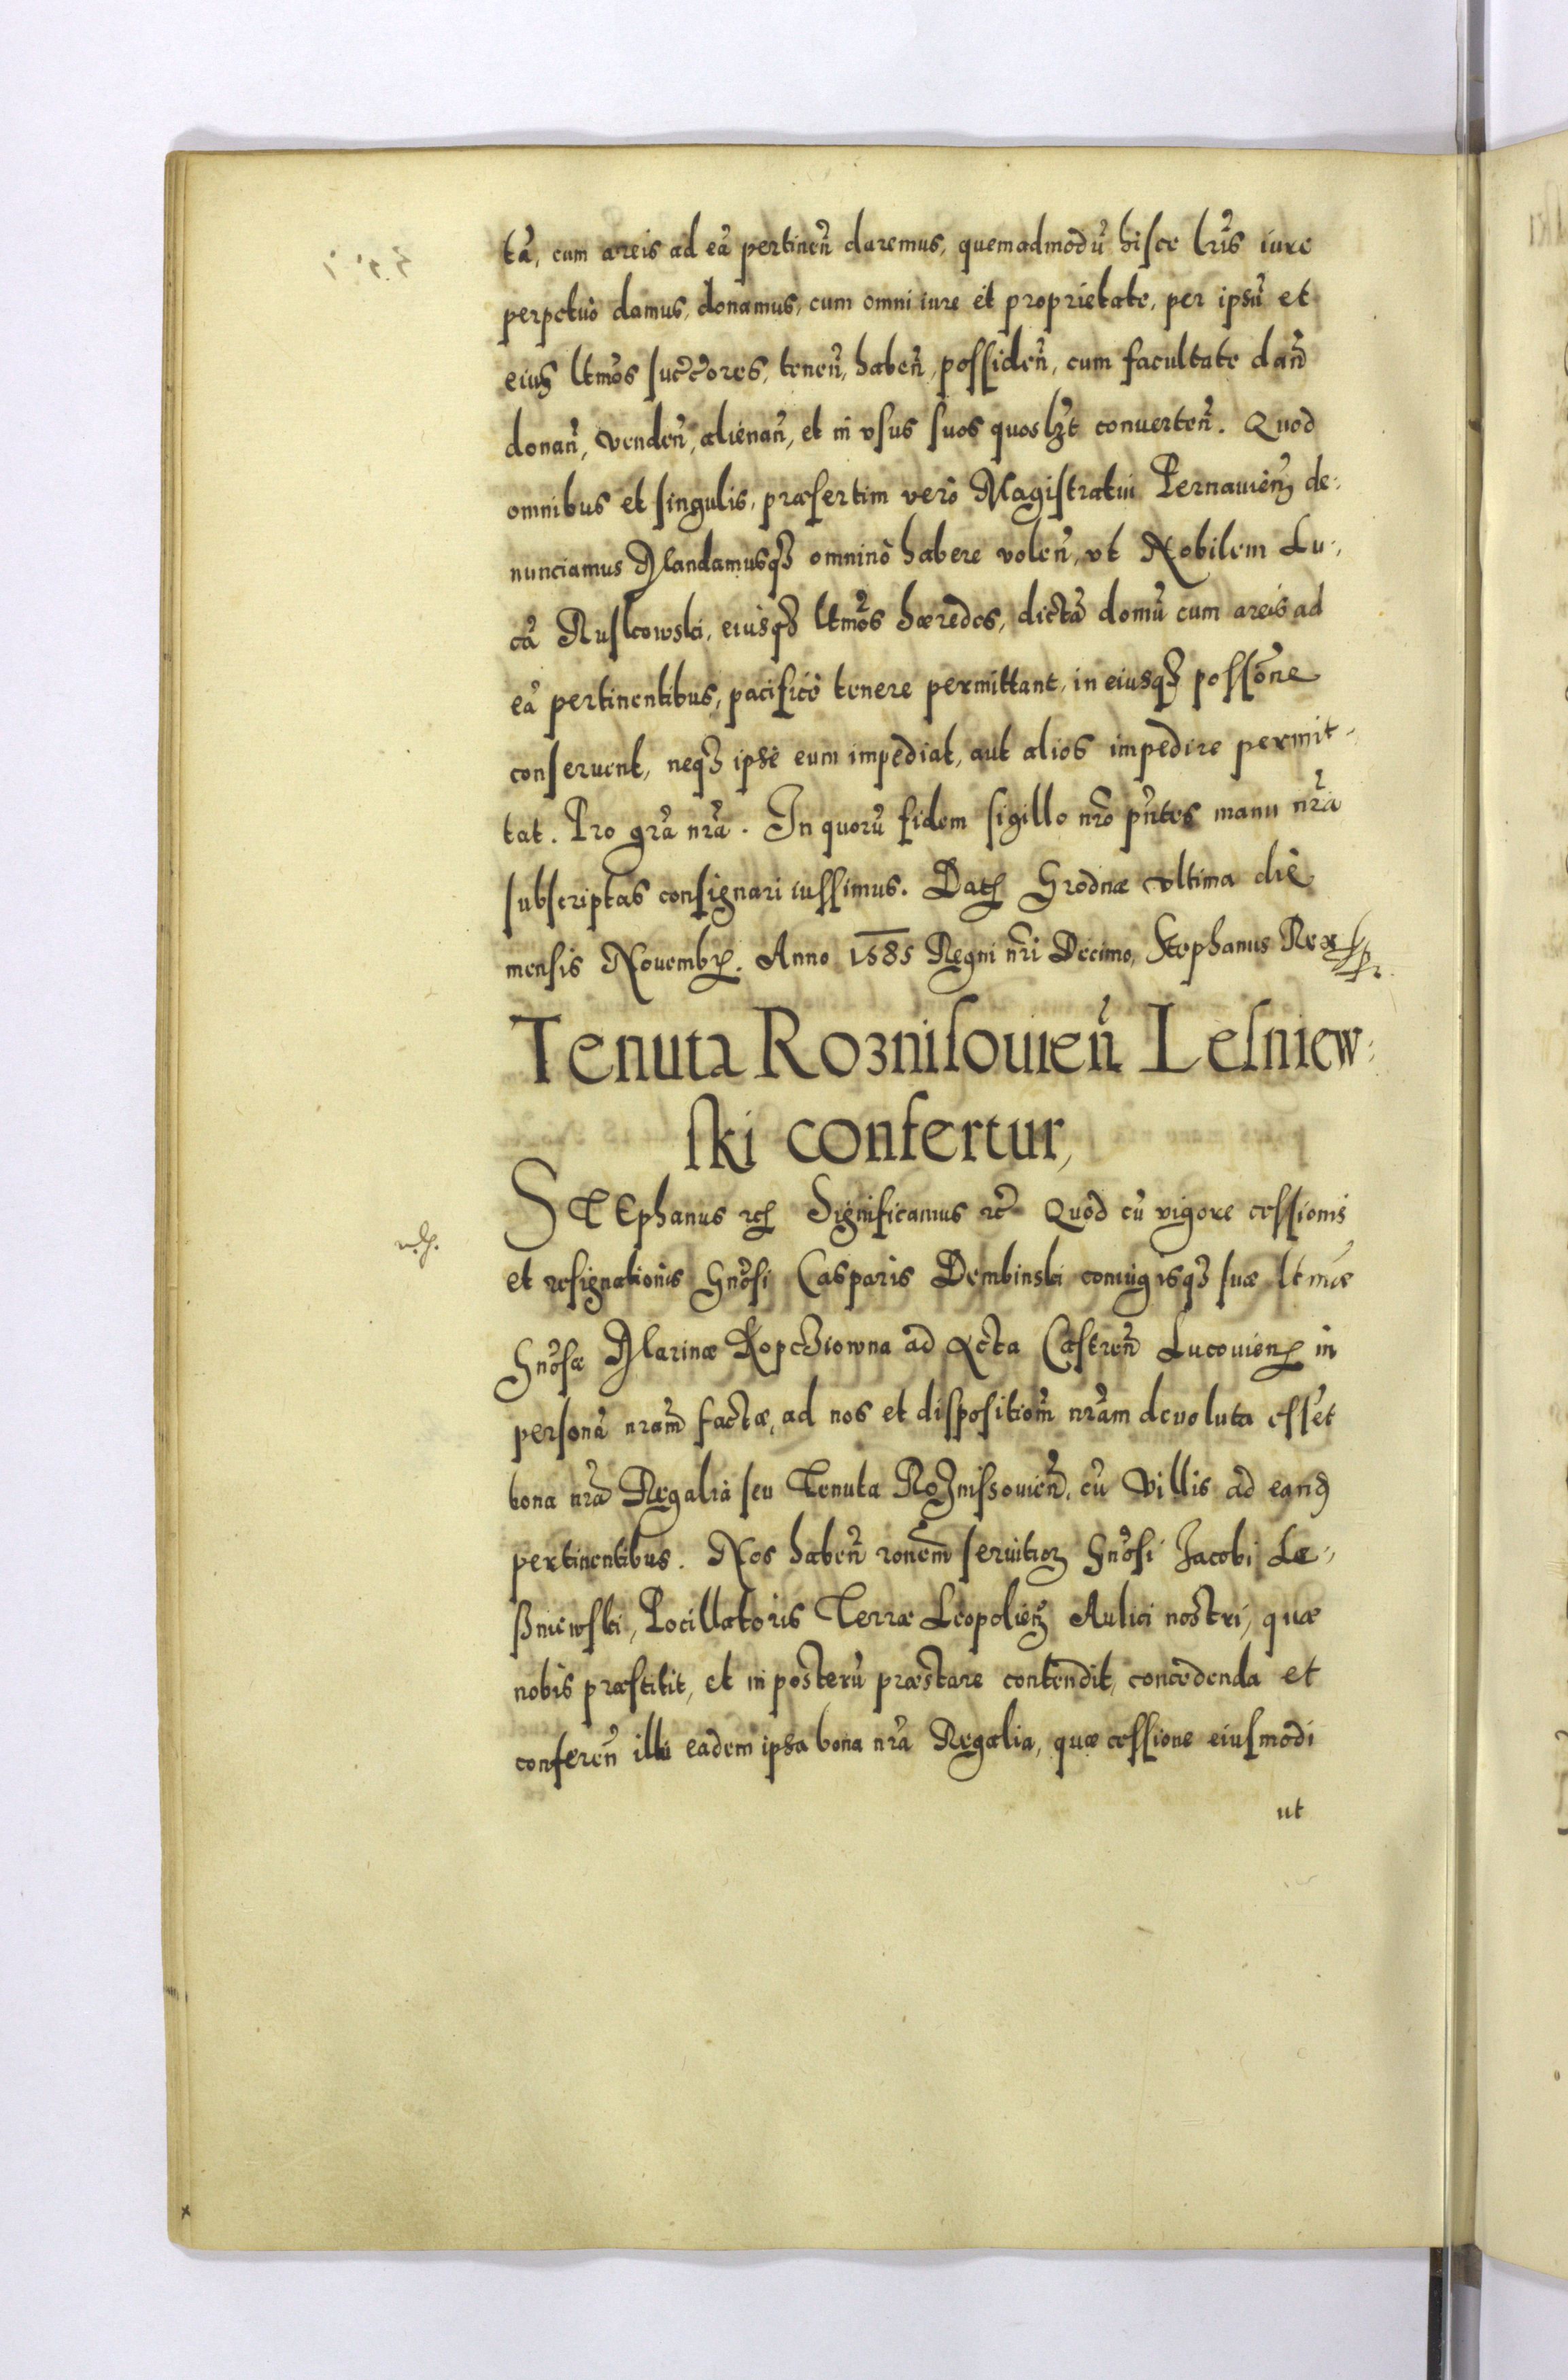 tã, cum areis ad eã pertineñ daremus, quemadmodũ hisce lr̃is iure
perpetuò damus, donamus, cum omni iure et proprietate, per ipsũ et
eius ltm̃os succ̃ores, teneñ, habeñ, possideñ, cum facultate dañd
donañ, vendeñ, alienañ, et in vsus suos quoslʒt conuerteñ. Quod
omnibus et singulis, præsertim verò Magistratui Pernauienʒ de:
nunciamus Mandamusqʒ omninò habere voleñ, vt Nobilem Lu:
cã Ruskowski, eiusqʒ ltm̃os hæredes, dictã domũ cum areis ad
eã pertinentibus, pacificè tenere permittant, in eiusqʒ poss̃one
conseruent, neqʒ ipse eum impediat, aut alios impedire permit-
tat. Pro gr̃a nr̃a. In quorũ fidem sigillo nr̃o pñtes manu nr̃a
subscriptas consignari iussimus. Datʒ Grodnæ vltima die
mensis Nouembrʒ. Anno 1585 Regni nr̃i Decimo, Stephanus Rex
Tenuta Rozniſouień Leſniew:
ſki confertur,
STEphanus rcʒ Significamus rc̃ Quod cũ vigore cessionis
et resignationis Gnõsi Casparis Dembinski coniugisqʒ suæ ltm̃æ
Gnõsæ Marinæ Kopcziowna ad Acta Castreñ Lucouienʒ in
personã nr̃am factæ, ad nos et dispositiom̃ nr̃am deuoluta esset
bona nr̃a Regalia seu Tenuta Roznissouieñ, cũ Villis ad eandʒ
pertinentibus. Nos habeñ ronem̃ seruitioʒ Gnõsi Jacobi Le:
ßniewski, Pocillatoris Terræ Leopolienʒ Aulici nostri, quæ
nobis præstitit, et in posterũ præstare contendit, concedenda et
confereñ illi eadem ipsa bona nr̃a Regalia, quæ cessione eiusmodi
ut